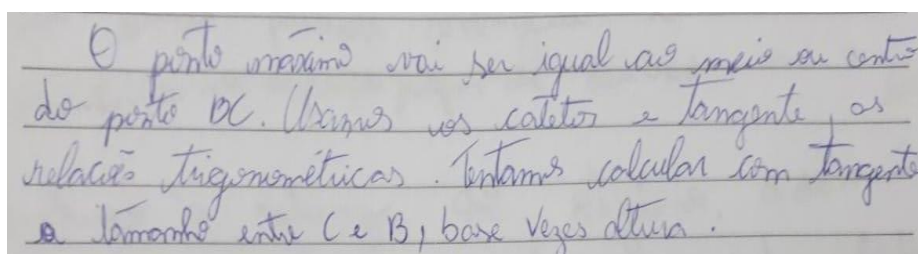 O ponto máximo vai ser igual ao meio ou centro
do ponto BC. Usamos os catetos e tangente, as
relações trigonométricas. Tentamos calcular com tangente
o tamanho entre C e B, base vezes altura.